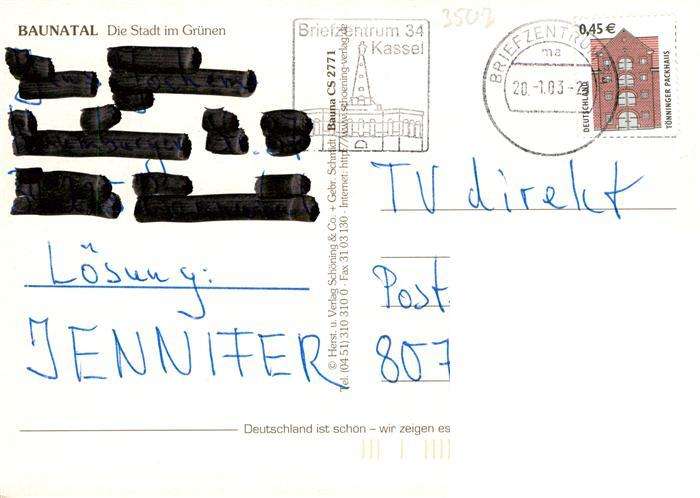 BAUNATAL Die Stadt im Grünen
Lösung:
JENNIFER
© Herst. u. Verlag Schöning & Co. + Gebr. Schmidt Bauna CS 2771
Tel. (04 51) 310 310 0 · Fax 31 03 130 · Internet: http://www.schoening-verlag.de
3502
Briefzentrum 34
Kassel
BRIEFZENTRUM
ma
20.-1.03-2
0,45 €
DEUTSCHLAND
TÖNNINGER PACKHAUS
TV direkt
Post
807
Deutschland ist schön – wir zeigen es